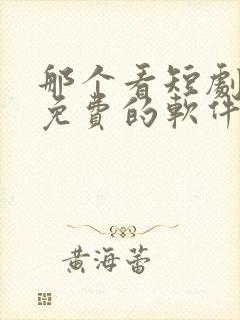 那个看短劇
免費的軟件
黄海蕾